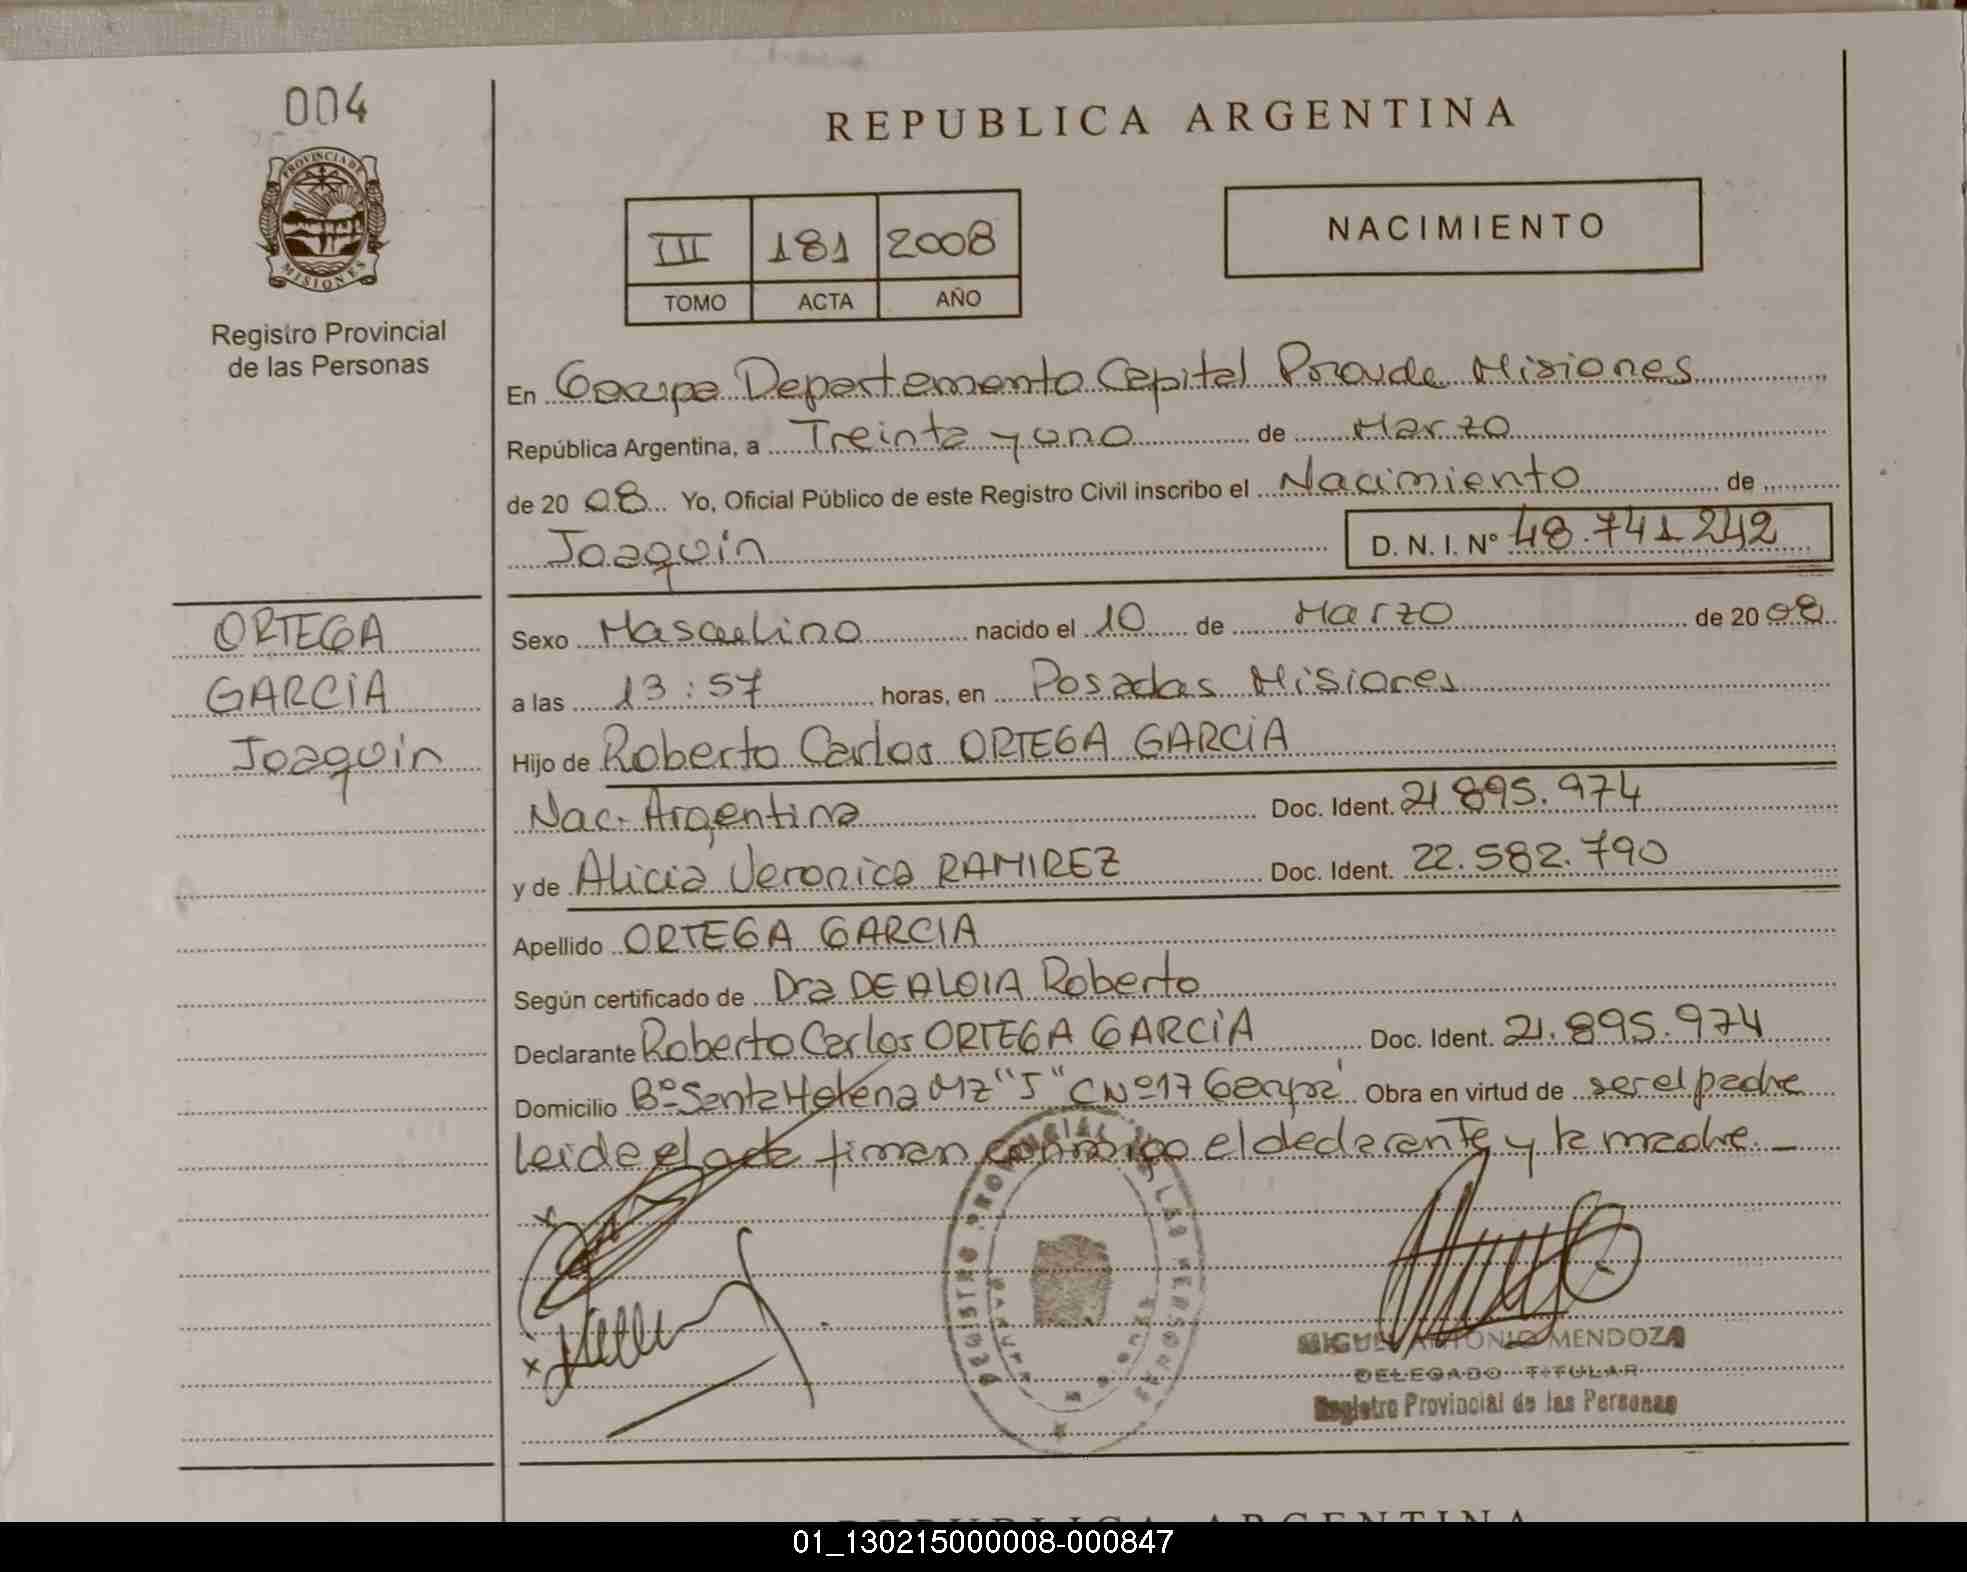 004
PROVINCIA DE
MISIONES
Registro Provincial
de las Personas
REPUBLICA ARGENTINA
III 181 2008
TOMO ACTA AÑO
NACIMIENTO
En Garupa Departamento Capital Prov de Misiones
República Argentina, a Treinta y uno de Marzo
de 20 08 Yo, Oficial Público de este Registro Civil inscribo el Nacimiento de
Joaquín D. N. I. N° 48.741.242
ORTEGA
GARCÍA
Joaquín
Sexo Masculino nacido el 10 de Marzo de 20 08
a las 13:57 horas, en Posadas Misiones
Hijo de Roberto Carlos ORTEGA GARCÍA
Nac. Argentina Doc. Ident. 21.895.974
y de Alicia Veronica RAMIREZ Doc. Ident. 22.582.790
Apellido ORTEGA GARCIA
Según certificado de Dra DE ALOIA Roberto
Declarante Roberto Carlos ORTEGA GARCÍA Doc. Ident. 21.895.974
Domicilio Bº Santa Helena Mz "J" C Nº 17 Garupá Obra en virtud de ser el padre
leida el acta firman conmigo el declarante y la madre. _
x
x
REGISTRO PROVINCIAL DE LAS PERSONAS
MIGUEL ANTONIO MENDOZA
DELEGADO TITULAR
Registro Provincial de las Personas
REPUBLICA ARGENTINA
01_130215000008-000847